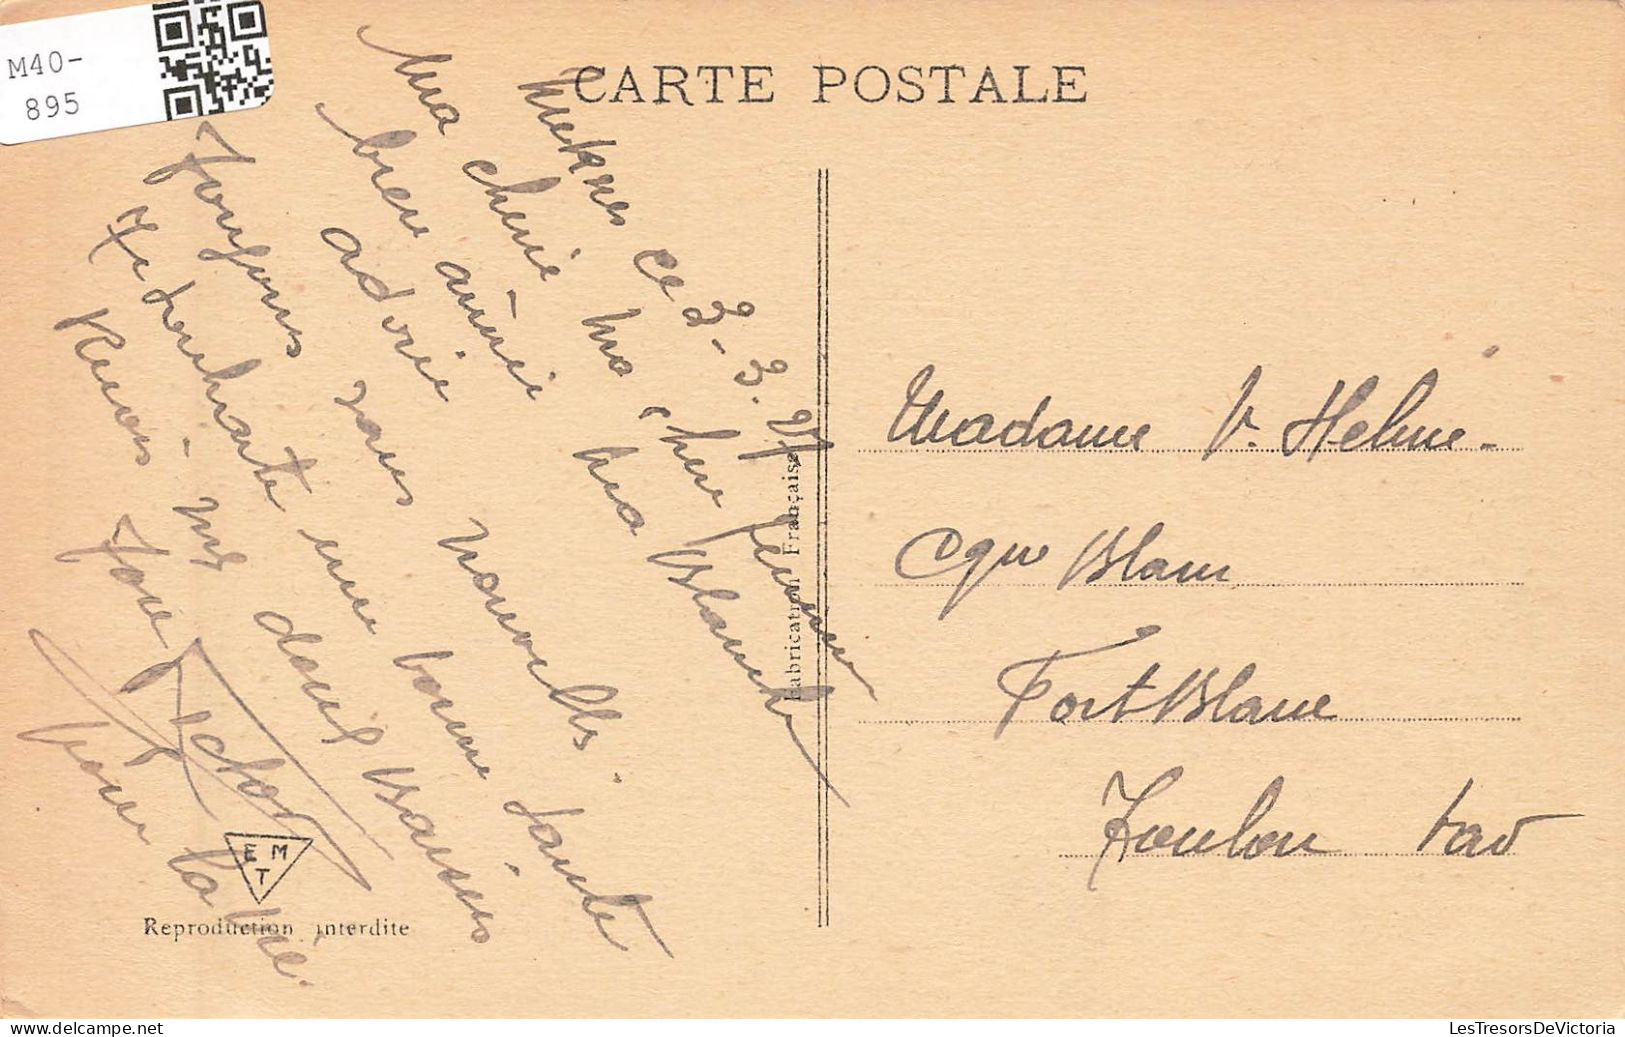 M40-
895
CARTE POSTALE
Meknes ce 3-3.27
Ma chérie ma chere femme
bien aimée ma Blanche
adorée
Toujours sans nouvelles.
Te souhaite une bonne santé
Recois mes doux Baisers
Ton Victor
pour la vie.
Fabrication Française
E M
T
Reproduction interdite
Madame V. Helmé
Blanc
Fort Blanc
Toulon Var
LesTresorsDeVictoria
www.delcampe.net